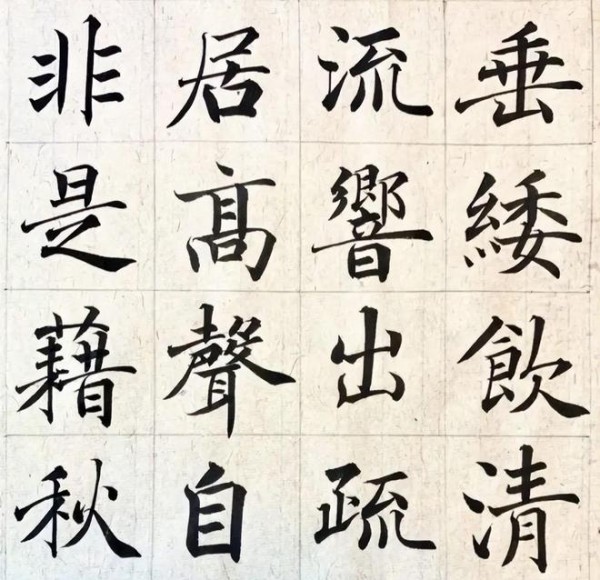 垂緌飲清
流響出疏
居髙聲自
非是藉秋